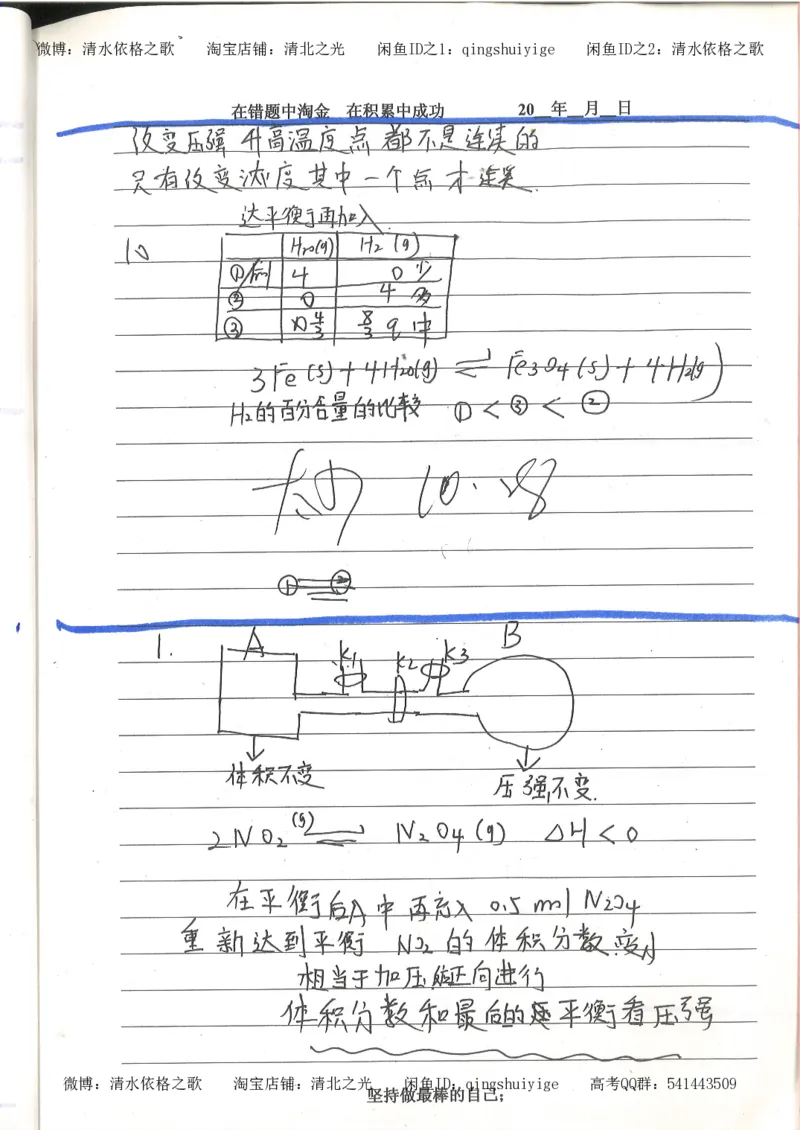 微博：清水依格之歌 淘宝店铺：清北之光 闲鱼ID之1：qingshuiyige 闲鱼ID之2：清水依格之歌
在错题中淘金 在积累中成功 20__年__月__日
改变压强 升高温度点都不是连续的
只有改变浓度其中一个点才连续.
达平衡再加入
10
H2O(g) H2(g)
①/前 4 0 少
② 0 4 多
③ 4/3 8/3 中
3Fe(s)+4H2O(g) ⇌ Fe3O4(s)+4H2(g)
H2的百分含量的比较 ①<③<②
① ②
1. A K1 K2 K3 B
体积不变
压强不变.
2NO2(g) ⇌ N2O4(g) △H<0
在平衡后A中再充入 0.5 mol N2O4
重新达到平衡 NO2的体积分数变小
相当于加压 正向进行
体积分数和最后的 平衡看压强
微博：清水依格之歌 淘宝店铺：清北之光 闲鱼ID：qingshuiyige 高考QQ群：541443509
坚持做最棒的自己；